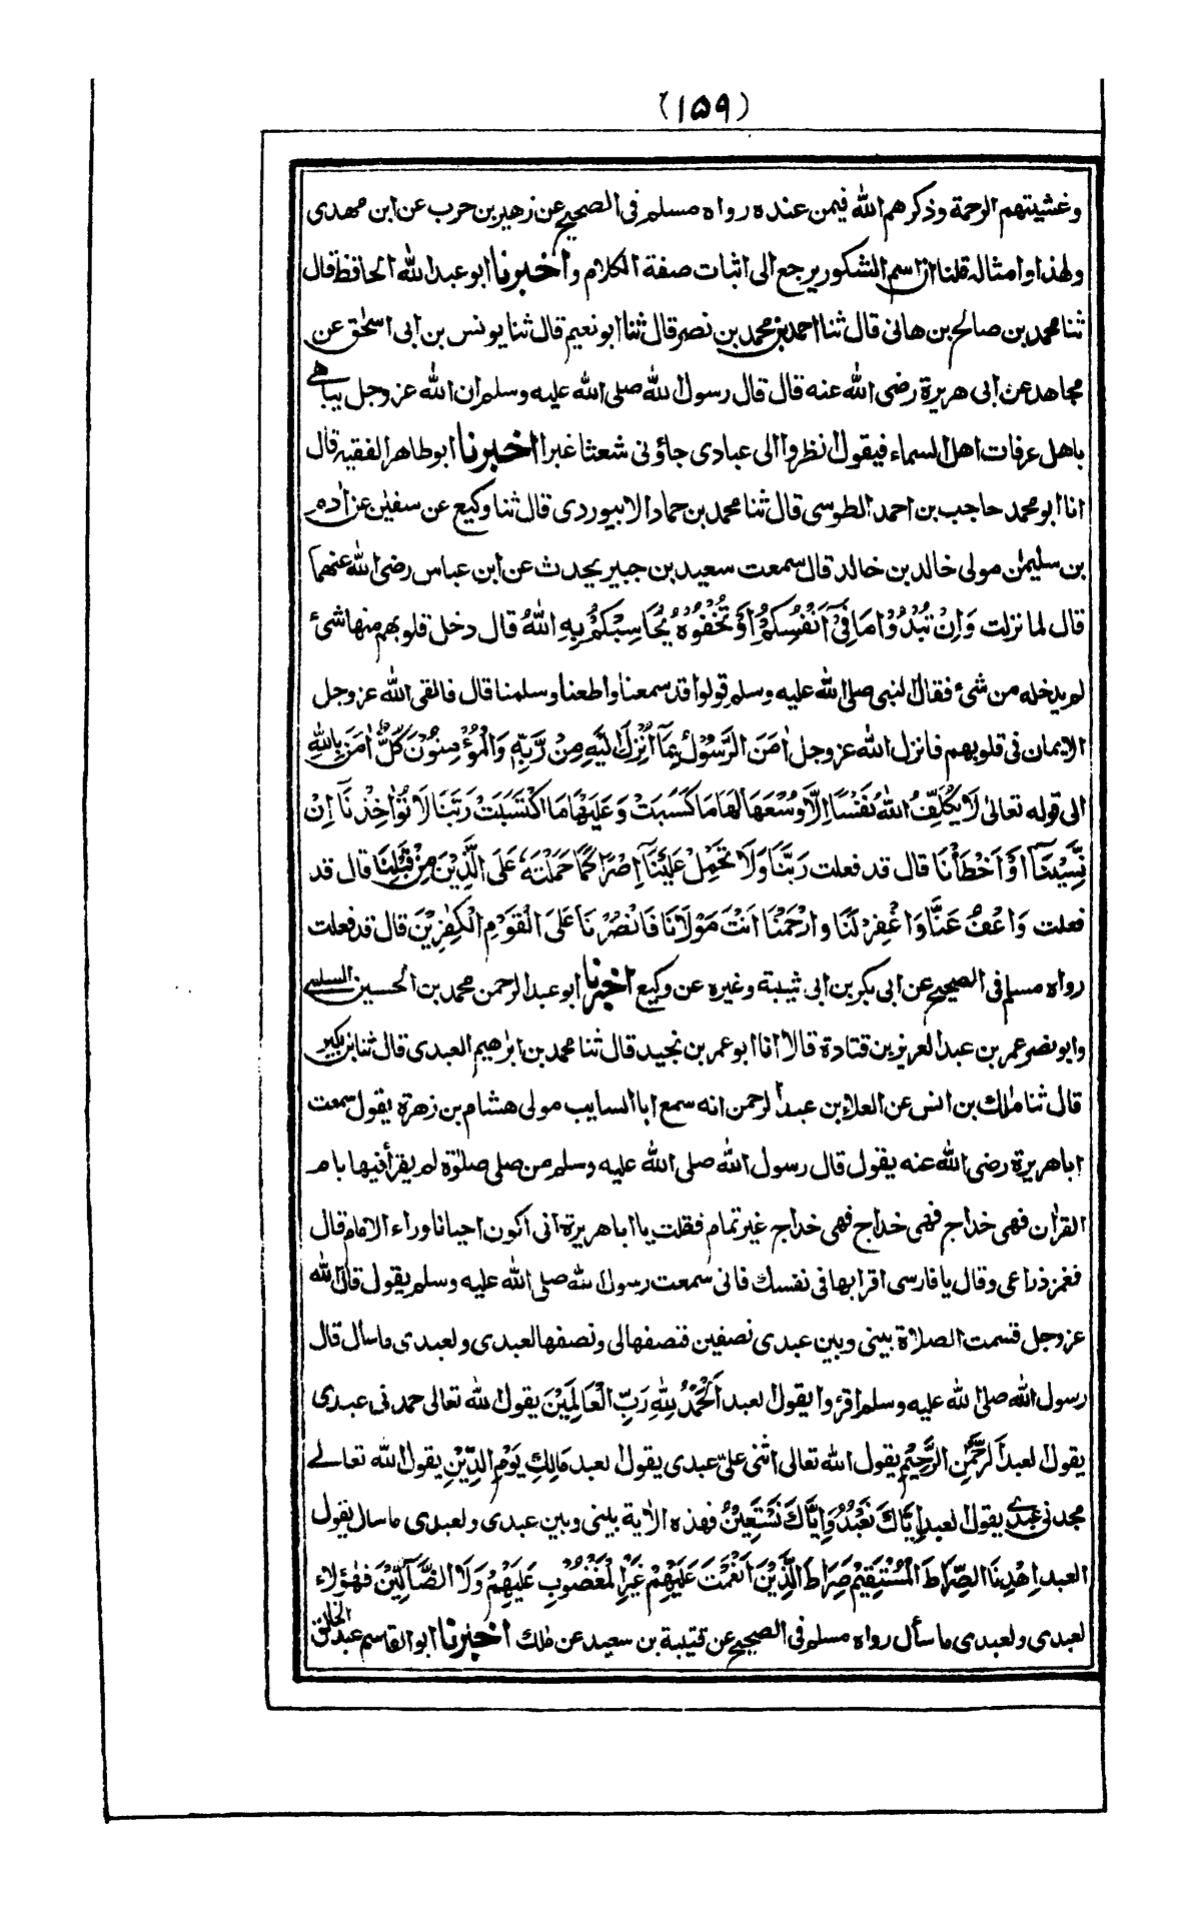 (١٥٩)
وغشيتهم الرحمة وذكرهم الله فيمن عنده رواه مسلم في الصحيح عن زهير بن حرب عن ابن مهدى
ولهذا وامثاله قلنا ان اسم الشكور يرجع الى اثبات صفة الكلام واخبرنا ابو عبد الله الحافظ قال
ثنا محمد بن صالح بن هانى قال ثنا احمد بن محمد بن نصر قال ثنا ابو نعيم قال ثنا يونس بن ابى اسحٰق عن
مجاهد عن ابى هريرة رضى الله عنه قال قال رسول الله صلى الله عليه وسلم ان الله عز وجل يباهي
باهل عرفات اهل السماء فيقول انظروا الى عبادى جاؤنى شعثا غبرا اخبرنا ابو طاهر الفقيه قال
انا ابو محمد حاجب بن احمد الطوسى قال ثنا محمد بن حماد الابيوردى قال ثنا وكيع عن سفيٰن عن اٰدم
بن سليمٰن مولى خالد بن خالد قال سمعت سعيد بن جبير يحدث عن ابن عباس رضى الله عنهما
قال لما نزلت وَاِنْ تُبْدُوْا مَا فِىْٓ اَنْفُسِكُمْ اَوْ تُخْفُوْهُ يُحَاسِبْكُمْ بِهِ اللّٰهُ قال دخل قلوبهم منها شئ
لم يدخله من شئ فقال النبى صلى الله عليه وسلم قولوا قد سمعنا واطعنا وسلمنا قال فالقى الله عز وجل
الايمان فى قلوبهم فانزل الله عز وجل اٰمَنَ الرَّسُوْلُ بِمَآ اُنْزِلَ اِلَيْهِ مِنْ رَّبِّهٖ وَالْمُؤْمِنُوْنَ كُلٌّ اٰمَنَ بِاللّٰهِ
الى قوله تعالىٰ لَا يُكَلِّفُ اللّٰهُ نَفْسًا اِلَّا وُسْعَهَا لَهَا مَا كَسَبَتْ وَعَلَيْهَا مَا اكْتَسَبَتْ رَبَّنَا لَا تُؤَاخِذْنَآ اِنْ
نَّسِيْنَآ اَوْ اَخْطَأْنَا قال قد فعلت رَبَّنَا وَلَا تَحْمِلْ عَلَيْنَآ اِصْرًا كَمَا حَمَلْتَهٗ عَلَى الَّذِيْنَ مِنْ قَبْلِنَا قال قد
فعلت وَاعْفُ عَنَّا وَاغْفِرْ لَنَا وارْحَمْنَا اَنْتَ مَوْلَانَا فَانْصُرْنَا عَلَى الْقَوْمِ الْكٰفِرِيْنَ قال قد فعلت
رواه مسلم فى الصحيح عن ابى بكر بن ابى شيبة وغيره عن وكيع اخبرنا ابو عبد الرحمن محمد بن الحسين السلمى
وابو نصر عمر بن عبد العزيز بن قتادة قالا انا ابو عمر بن نجيد قال ثنا محمد بن ابرٰهيم العبدى قال ثنا ابن بكير
قال ثنا مٰلك بن انس عن العلاء بن عبد الرحمن انه سمع ابا السايب مولى هشام بن زهرة يقول سمعت
اباهريرة رضى الله عنه يقول قال رسول الله صلى الله عليه وسلم من صلى صلوٰة لم يقرأ فيها بام
القرٰان فهى خداج فهى خداج فهى خداج غير تمام فقلت يا اباهريرة انى اكون احيانا وراء الامام قال
فغمز ذراعى وقال يا فارسى اقرا بها فى نفسك فانى سمعت رسول الله صلى الله عليه وسلم يقول قال الله
عز وجل قسمت الصلاة بينى وبين عبدى نصفين فنصفها لى ونصفها لعبدى ولعبدى ما سأل قال
رسول الله صلى الله عليه وسلم اقرؤا يقول العبد اَلْحَمْدُ لِلّٰهِ رَبِّ الْعَالَمِيْنَ يقول الله تعالى حمدنى عبدى
يقول العبد اَلرَّحْمٰنِ الرَّحِيْمِ يقول الله تعالى اثنى علىّ عبدى يقول العبد مَالِكِ يَوْمِ الدِّيْنِ يقول الله تعالے
مجدنى عبدے يقول العبد اِيَّاكَ نَعْبُدُ وَاِيَّاكَ نَسْتَعِيْنُ فهذه الاٰية بينى وبين عبدى ولعبدى ما سال يقول
العبد اِهْدِنَا الصِّرَاطَ الْمُسْتَقِيْمَ صِرَاطَ الَّذِيْنَ اَنْعَمْتَ عَلَيْهِمْ غَيْرِ الْمَغْضُوْبِ عَلَيْهِمْ وَلَا الضَّآلِّيْنَ فهٰؤلاء
لعبدى ولعبدى ما سأل رواه مسلم فى الصحيح عن قتيبة بن سعيد عن مٰلك اخبرنا ابو القاسم عبد الخالق